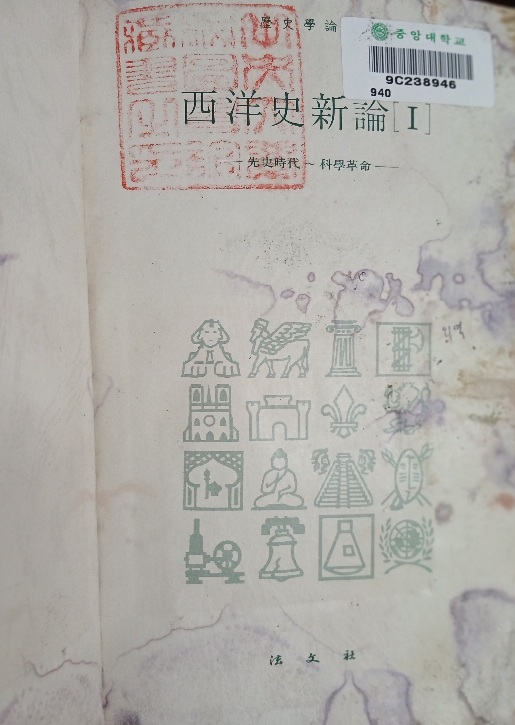 歷史學論
중앙대학교
9C238946
940
西洋史新論[I]
—先史時代~科學革命—
法文社